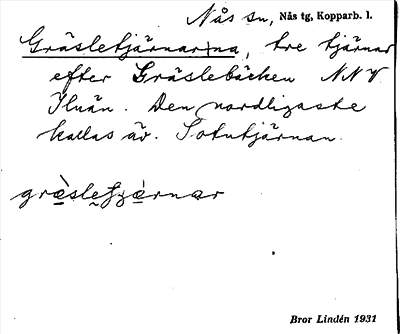 Nås sn, Nås tg, Kopparb. l.
Gräsletjärnarna, tre tjärnar
efter Gräslebäcken NNV
Iluån. Den nordligaste
kallas äv. Sotutjärnan.
græ̀sletjæ̀rnar
Bror Lindén 1931